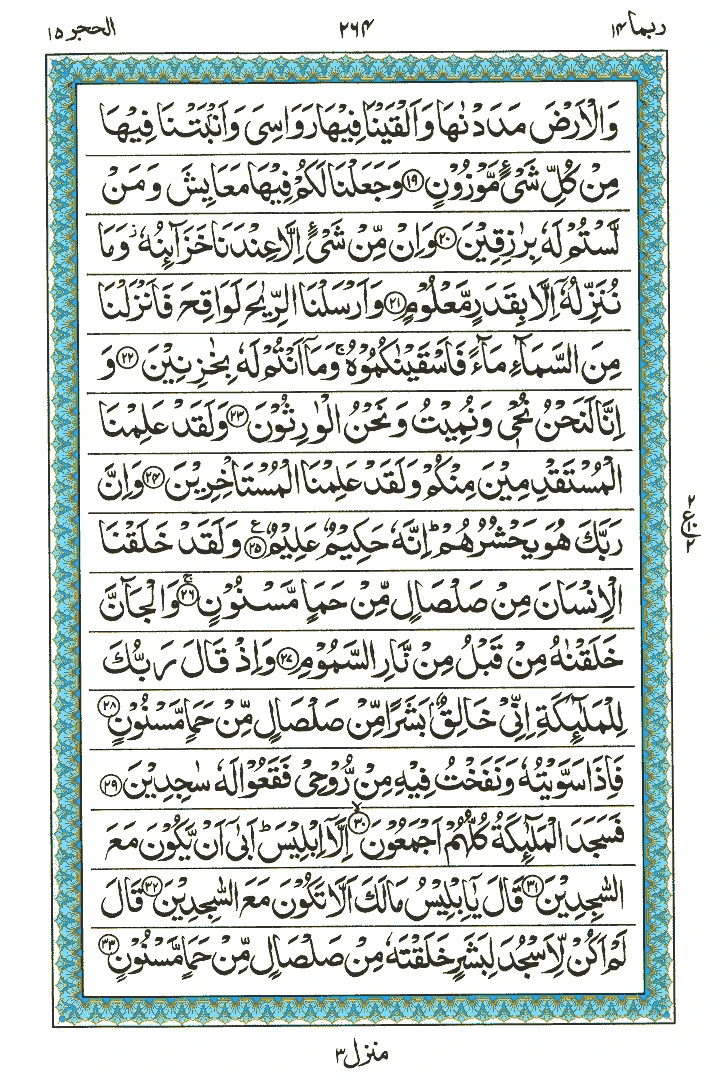 ربما ۱۴ ۲۶۴ الحجر ۱۵
وَالْاَرْضَ مَدَدْنٰهَا وَاَلْقَيْنَا فِيْهَا رَوَاسِيَ وَاَنْۢبَتْنَا فِيْهَا
مِنْ كُلِّ شَيْءٍ مَّوْزُوْنٍ ۱۹ وَجَعَلْنَا لَكُمْ فِيْهَا مَعَايِشَ وَمَنْ
لَّسْتُمْ لَهٗ بِرٰزِقِيْنَ ۲۰ وَاِنْ مِّنْ شَيْءٍ اِلَّا عِنْدَنَا خَزَآئِنُهٗ ز وَمَا
نُنَزِّلُهٗٓ اِلَّا بِقَدَرٍ مَّعْلُوْمٍ ۲۱ وَاَرْسَلْنَا الرِّيٰحَ لَوَاقِحَ فَاَنْزَلْنَا
مِنَ السَّمَآءِ مَآءً فَاَسْقَيْنٰكُمُوْهُ ۚ وَمَآ اَنْتُمْ لَهٗ بِخٰزِنِيْنَ ۲۲ وَ
اِنَّا لَنَحْنُ نُحْيٖ وَنُمِيْتُ وَنَحْنُ الْوٰرِثُوْنَ ۲۳ وَلَقَدْ عَلِمْنَا
الْمُسْتَقْدِمِيْنَ مِنْكُمْ وَلَقَدْ عَلِمْنَا الْمُسْتَاْخِرِيْنَ ۲۴ وَاِنَّ
رَبَّكَ هُوَ يَحْشُرُهُمْ ؕ اِنَّهٗ حَكِيْمٌ عَلِيْمٌ ۲۵ ع وَلَقَدْ خَلَقْنَا
۲ ع ۱۰ ۲
الْاِنْسَانَ مِنْ صَلْصَالٍ مِّنْ حَمَاٍ مَّسْنُوْنٍ ۲۶ ۚ وَالْجَآنَّ
خَلَقْنٰهُ مِنْ قَبْلُ مِنْ نَّارِ السَّمُوْمِ ۲۷ وَاِذْ قَالَ رَبُّكَ
لِلْمَلٰٓئِكَةِ اِنِّيْ خَالِقٌۢ بَشَرًا مِّنْ صَلْصَالٍ مِّنْ حَمَاٍ مَّسْنُوْنٍ ۲۸
فَاِذَا سَوَّيْتُهٗ وَنَفَخْتُ فِيْهِ مِنْ رُّوْحِيْ فَقَعُوْا لَهٗ سٰجِدِيْنَ ۲۹
فَسَجَدَ الْمَلٰٓئِكَةُ كُلُّهُمْ اَجْمَعُوْنَ ۳۰ لا اِلَّآ اِبْلِيْسَ ؕ اَبٰٓى اَنْ يَّكُوْنَ مَعَ
السّٰجِدِيْنَ ۳۱ قَالَ يٰٓاِبْلِيْسُ مَا لَكَ اَلَّا تَكُوْنَ مَعَ السّٰجِدِيْنَ ۳۲ قَالَ
لَمْ اَكُنْ لِّاَسْجُدَ لِبَشَرٍ خَلَقْتَهٗ مِنْ صَلْصَالٍ مِّنْ حَمَاٍ مَّسْنُوْنٍ ۳۳
منزل ۳